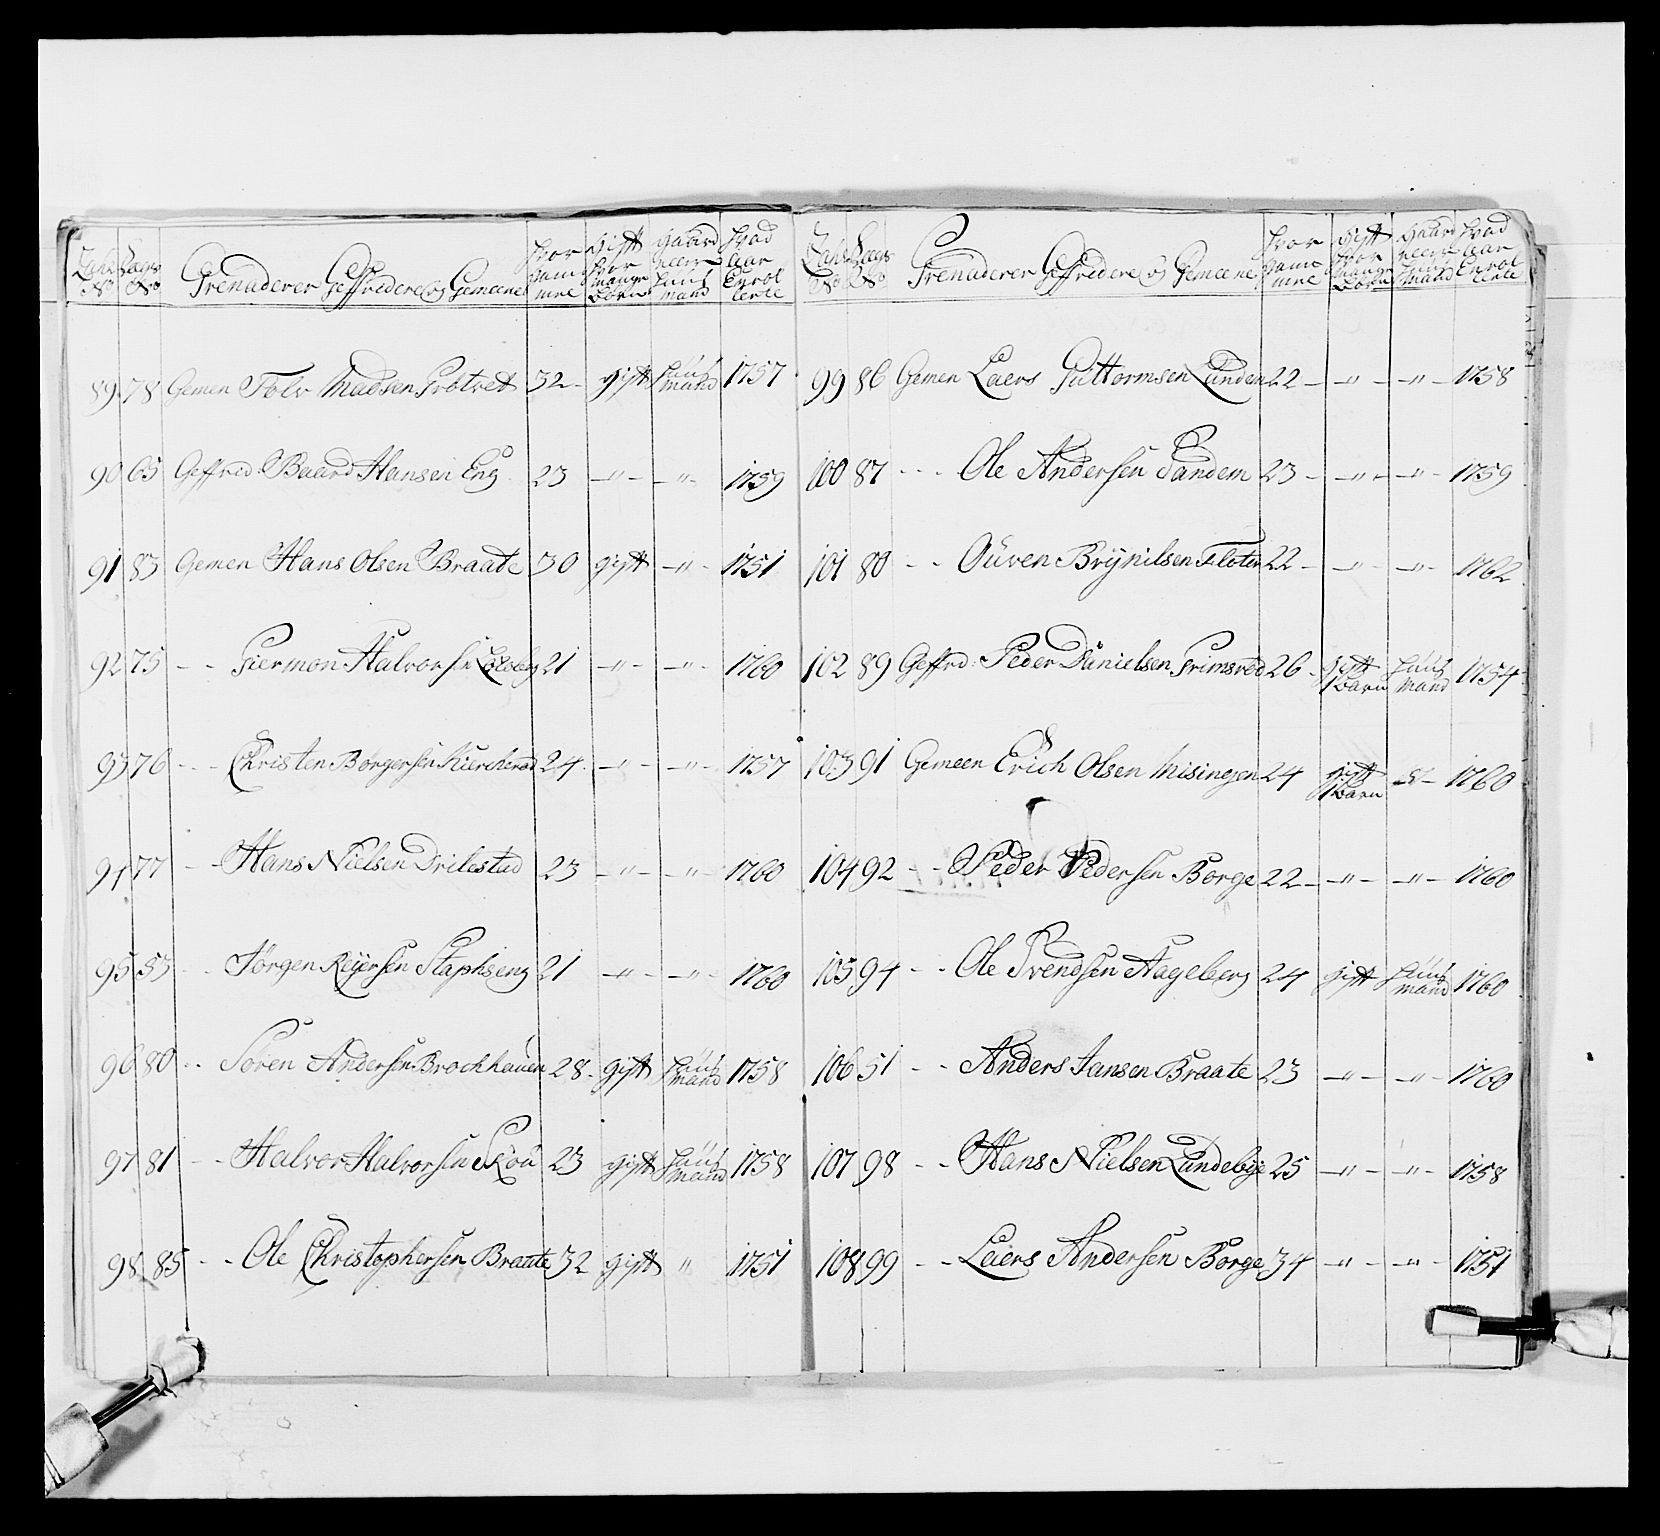 Zahl No Lægs No Grenaderer Geffridere og Gemeene hvor gam mel gift hvor mange Børn gaard huus mand hvad Aar Enrol lerte
89 78 Gemen Tolv Madsen Grøtvet 32 - gift huus mand 1757
90 65 Geffred: Baard Hansen Eng 23 -"- -"- 1759
91 83 Gemen Hans Olsen Braate 30 gift -"- 1751
92 75 - - Giermon Halvorsen 21 -"- -"- 1760
93 76 - - Christen Børgersen Kiercherød 24 -"- -"- 1757
94 77 - - Hans Nielsen Drilestad 23 -"- -"- 1760
95 55 - - Jørgen Reyersen Staphseng 21 -"- -"- 1760
96 80 - - Søren Andersen Brochhauen 28 - gift huus mand 1758
97 81 - - Halvor Halvorsen Skou 23 gift huus mand 1758
98 85 - - Ole Christophersen Braate 32 gift " 1751
Zahl No Lægs No Grenaderer Geffridere og Gemeene hvor gam mel gift hvor mange Børn gaard huus mand hvad Aar Enrol lerte
99 86 Gemen Laers Guttormsen Lunden 22 - -"- -"- 1758
100 87 - - - Ole Andersen Sandem 23 - -"- -"- 1759
101 80 - - Ouven Brÿnilsen Floten 22 - -"- -"- 1762
102 89 Geffrd: Peder Danielsen Grimsrød 26 - gift 1 Barn huus mand 1754
103 91 Gemeen Erich Olsen Misingen 24 gift 1 Barn -"- 1760
104 92 - - Peder Pedersen Borge 22 - -"- -"- 1760
105 94 - - Ole Svendsen Hageberg 24 gift huus mand 1760
106 51 - - Anders Jansen Braate 23 -"- -"- 1760
107 98 - - Hans Nielsen Lundebye 25 -"- -"- 1758
108 99 - - Laers Andersen Borge 34 -"- -"- 1751